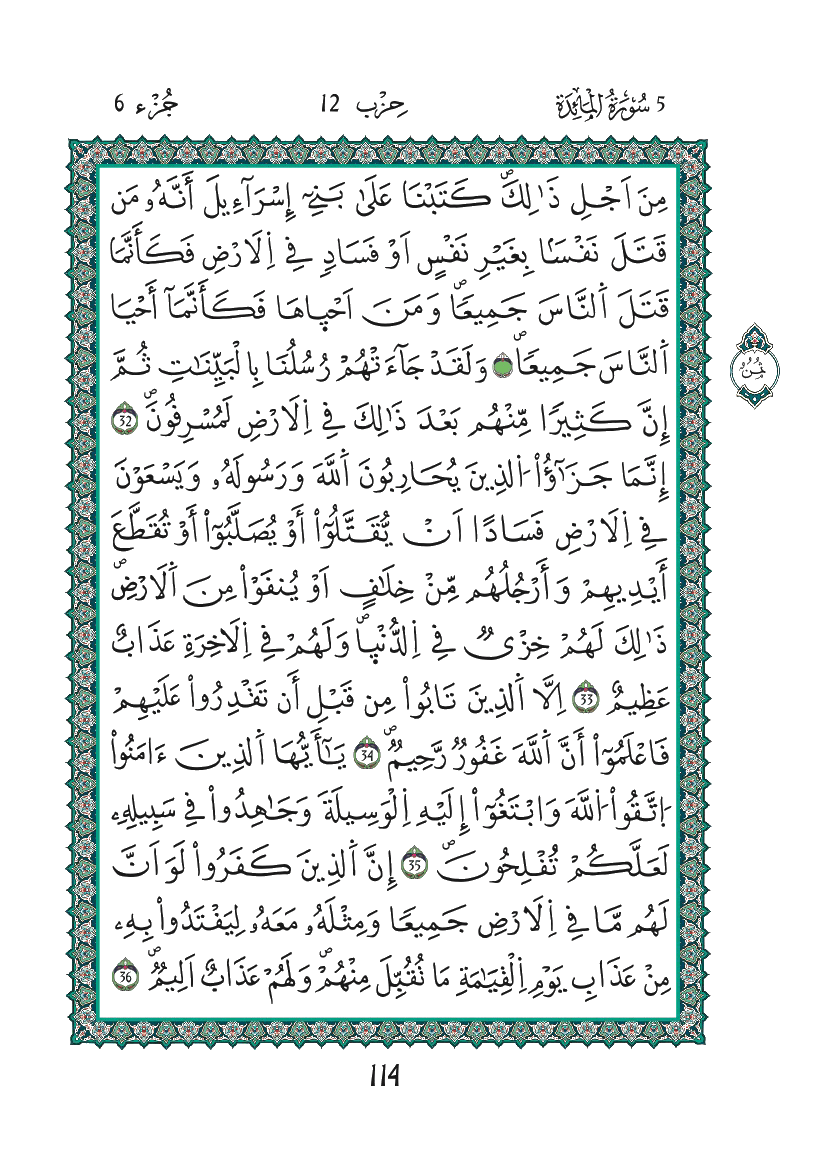 5 سُورَةُ الْمَائِدَة حِزْب 12 جُزْء 6
مِنَ اَجْلِ ذَٰلِكَۖ كَتَبْنَا عَلَىٰ بَنِےٓ إِسْرَآءِيلَ أَنَّهُۥ مَن
قَتَلَ نَفْسَاۢ بِغَيْرِ نَفْسٍ اَوْ فَسَادٖ فِے اِ۬لَارْضِ فَكَأَنَّمَا
قَتَلَ اَ۬لنَّاسَ جَمِيعاٗۖ وَمَنَ اَحْي۪اهَا فَكَأَنَّمَآ أَحْيَا
اَ۬لنَّاسَ جَمِيعاٗۖ وَلَقَدْ جَآءَتْهُمْ رُسُلُنَا بِالْبَيِّنَٰتِ ثُمَّ
إِنَّ كَثِيراٗ مِّنْهُم بَعْدَ ذَٰلِكَ فِے اِ۬لَارْضِ لَمُسْرِفُونَۖ 32
إِنَّمَا جَزَٰٓؤُاْ اُ۬لذِينَ يُحَارِبُونَ اَ۬للَّهَ وَرَسُولَهُۥ وَيَسْعَوْنَ
فِے اِ۬لَارْضِ فَسَاداً اَنْ يُّقَتَّلُوٓاْ أَوْ يُصَلَّبُوٓاْ أَوْ تُقَطَّعَ
أَيْدِيهِمْ وَأَرْجُلُهُم مِّنْ خِلَٰفٍ اَوْ يُنفَوْاْ مِنَ اَ۬لَارْضِۖ
ذَٰلِكَ لَهُمْ خِزْيٞ فِے اِ۬لدُّنْي۪اۖ وَلَهُمْ فِے اِ۬لَاخِرَةِ عَذَابٌ
عَظِيمٌ 33 اِلَّا اَ۬لذِينَ تَابُواْ مِن قَبْلِ أَن تَقْدِرُواْ عَلَيْهِمْ
فَاعْلَمُوٓاْ أَنَّ اَ۬للَّهَ غَفُورٞ رَّحِيمٞۖ 34 يَٰٓأَيُّهَا اَ۬لذِينَ ءَامَنُواْ
اُ۪تَّقُواْ اُ۬للَّهَ وَابْتَغُوٓاْ إِلَيْهِ اِ۬لْوَسِيلَةَ وَجَٰهِدُواْ فِے سَبِيلِهِۦ
لَعَلَّكُمْ تُفْلِحُونَۖ 35 إِنَّ اَ۬لذِينَ كَفَرُواْ لَوَ اَنَّ
لَهُم مَّا فِے اِ۬لَارْضِ جَمِيعاٗ وَمِثْلَهُۥ مَعَهُۥ لِيَفْتَدُواْ بِهِۦ
مِنْ عَذَابِ يَوْمِ اِ۬لْقِيَٰمَةِ مَا تُقُبِّلَ مِنْهُمْۖ وَلَهُمْ عَذَابٌ اَلِيمٞۖ 36
ثُمُن
114